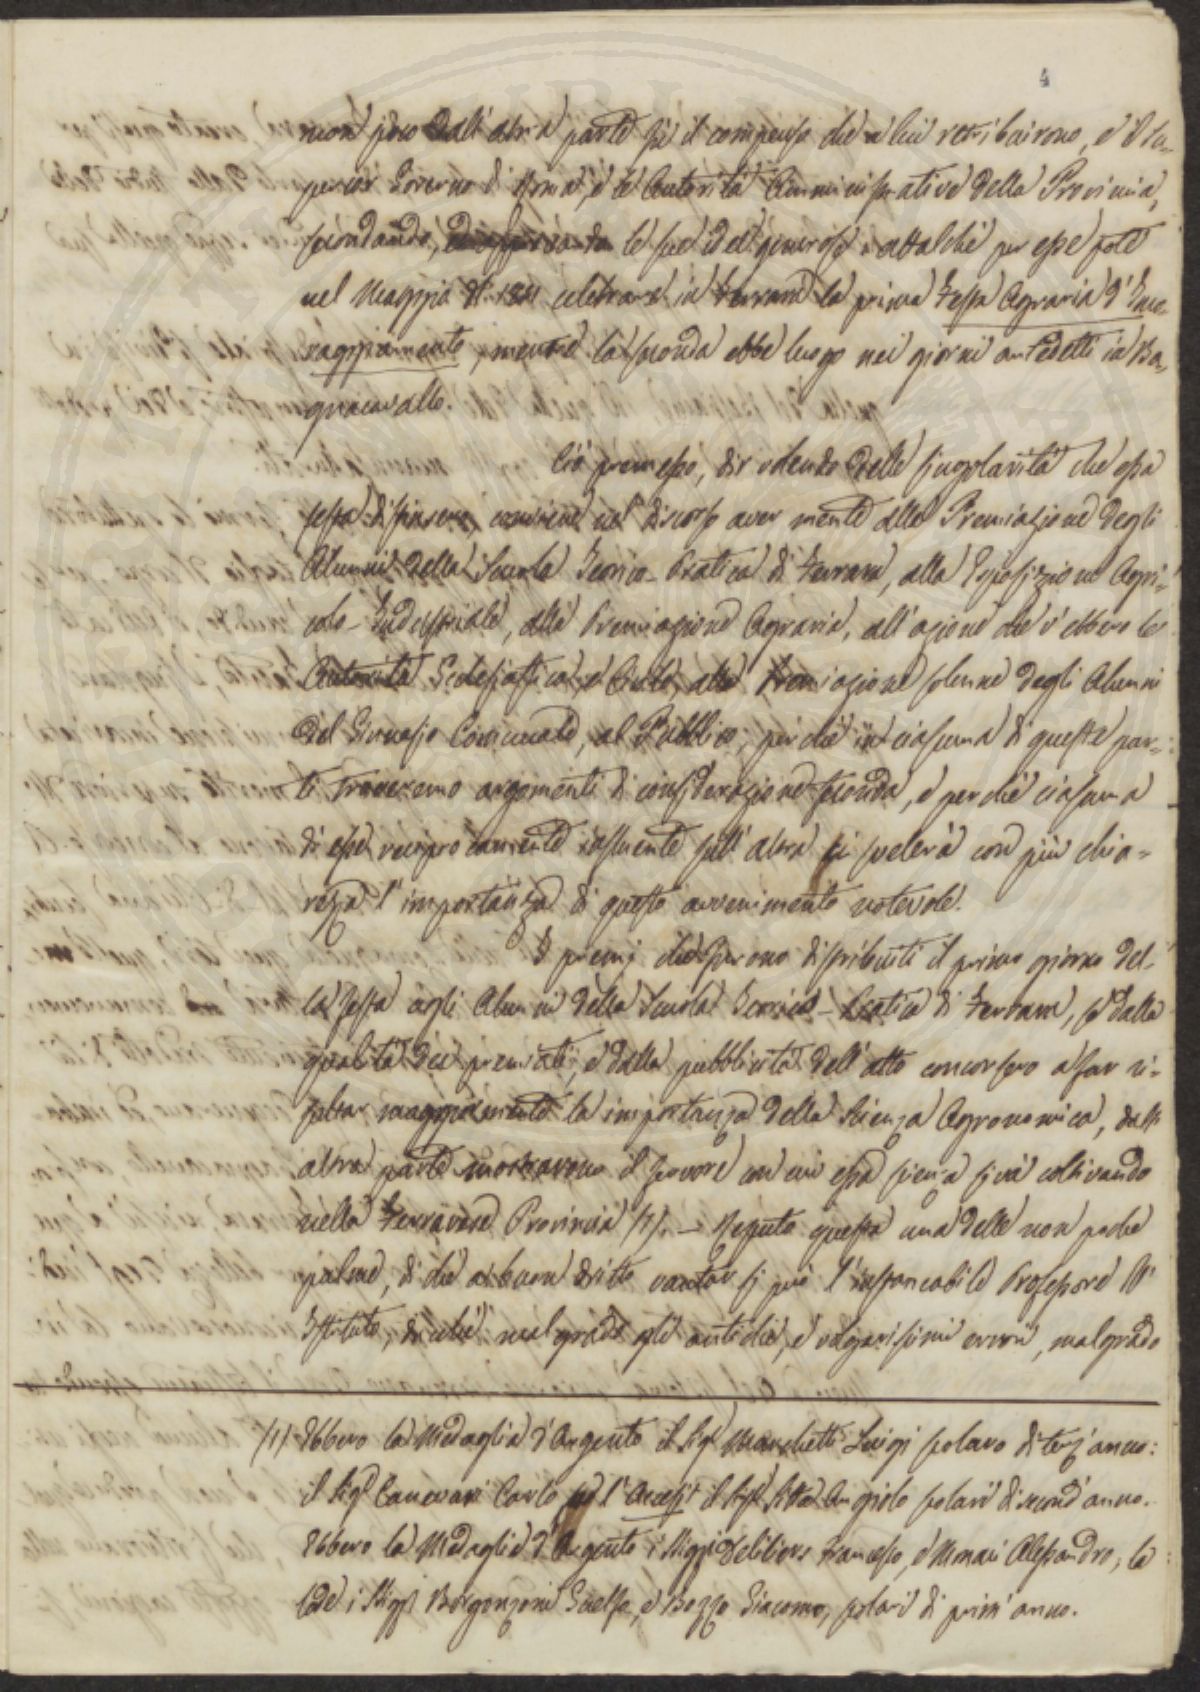 4
non poco dall'altra parte fù il compenso che a lui retribuirono, e il Su-
perior Governo di Roma, e le Autorità Amministrative della Provincia,
secondando, le sue idee generose; attalché per esse poté
nel Maggio celebrarsi in Ferrara la prima Festa Agraria d'Inco-
raggiamento, mentre la seconda ebbe luogo nei giorni anzidetti in Ba-
gnacavallo.
Ciò premesso, dir volendo delle singolarità che essa
festa conviene nel discorso aver mente alla Premiazione degli
Alunni della Scuola Teorico-Pratica di Ferrara, alla Esposizione Agri-
colo-Industriale, alla Premiazione Agraria, all'azione che v'ebbero le
Autorità Ecclesiastica e Civile, alla Premiazione solenne degli Alunni
del Ginnasio Comunale, al Pubblico; perché in ciascuna di queste par-
ti troveremo argomenti di considerazione feconda, e perché ciascuna
di esse reciprocamente influente sull'altra ci svelerà con più chia-
rezza l'importanza di questo avvenimento notevole.
I premj che furono distribuiti il primo giorno del-
la festa agli Alunni della Scuola Teorico-Pratica di Ferrara, se dalla
qualità dei premiati, e dalla pubblicità dell'atto concorsero a far ri-
saltar maggiormente la importanza della Scienza Agronomica, dall'
altra parte mostrarono il fervore con cui essa scienza si va coltivando
nella Ferrarese Provincia (1). — Reputo questa una delle non poche
palme, di che a buon dritto vantar si può l'instancabile Professore
malgrado gli antichi, e volgarissimi errori, malgrado
(1) Ebbero la Medaglia d'Argento il Sig. Marchetti Luigi scolaro di terz'anno:
il Sig. Canevari Carlo ed l'Accessit il Sig. Angiolo scolari di second'anno.
Ebbero la Medaglia d'Argento i Sigg. Deliliers Francesco, e Monari Alessandro, la
lode i Sigg. Borgonzoni Guelfo, e Bozzo Giacomo, scolari di prim'anno.